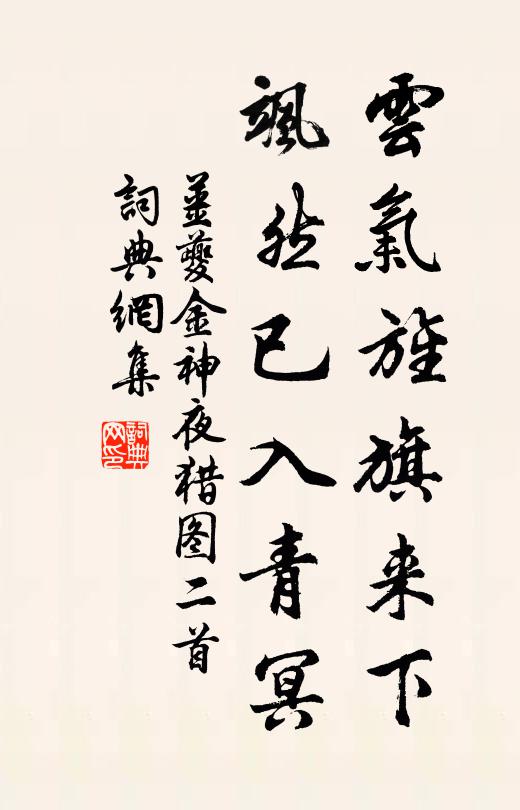 雲氣旌旗来下
颯然已入青冥
姜夔金神夜猎图二首
詞典網集
詞典网印